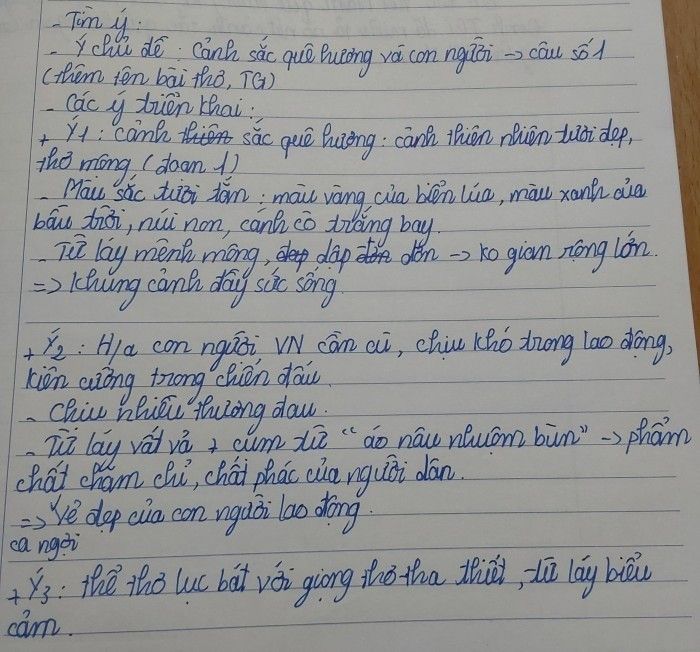 - Tìm ý:
- Ý chủ đề: Cảnh sắc quê hương và con người → câu số 1
(thêm tên bài thơ, TG)
- Các ý triển khai:
+ Ý1: cảnh thiên sắc quê hương: cảnh thiên nhiên tươi đẹp,
thơ mộng (đoạn 1)
- Màu sắc tươi tắn: màu vàng của biển lúa, màu xanh của
bầu trời, núi non, cánh cò trắng bay.
- Từ láy mênh mông, dập dờn → ko gian rộng lớn.
=> Khung cảnh đầy sức sống.
+ Ý2: H/a con người VN cần cù, chịu khó trong lao động,
kiên cường trong chiến đấu.
- Chịu nhiều thương đau.
- Từ láy vất vả + cụm từ "áo nâu nhuộm bùn" → phẩm
chất chăm chỉ, chất phác của người dân.
=> Vẻ đẹp của con người lao động.
ca ngợi
+ Ý3: thể thơ lục bát với giọng thơ tha thiết, từ láy biểu
cảm.